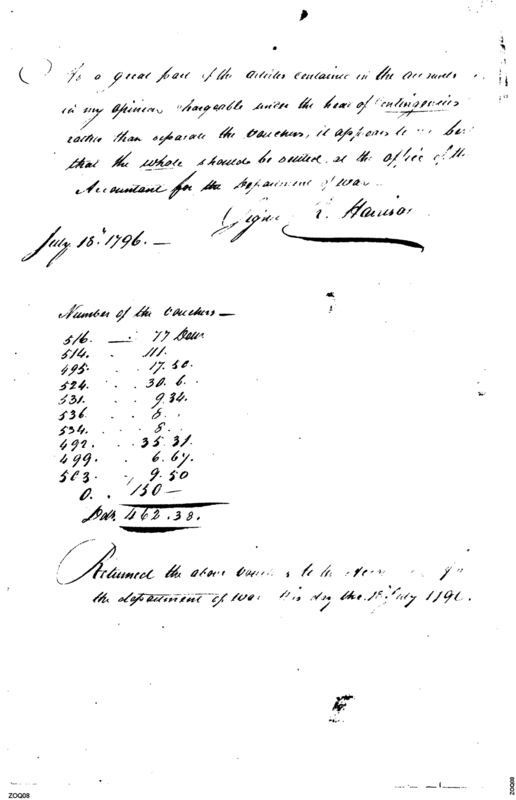 As a great part of the articles contained in the accounts
in my opinion chargeable under the head of Contingencies
rather than separate the vouchers, it appears to me best
that the whole should be settled at the office of the
Accountant for the Department of War
Signed R. Harrison
July 18th 1796.—
Number of the vouchers—
516. — 77 Dollrs
514. . 111.
495 . . 17.50.
524 . . 30.6.
531. . . 9.34.
536 . . 8.
534. . . 8.
492. . . 35.31.
499. . 6.67.
503. . 9.50
0. . 150—
Dolrs 462.38.
Returned the above to the
the department of war this day the 18th July 1796.
ZOQ08
ZOQ08